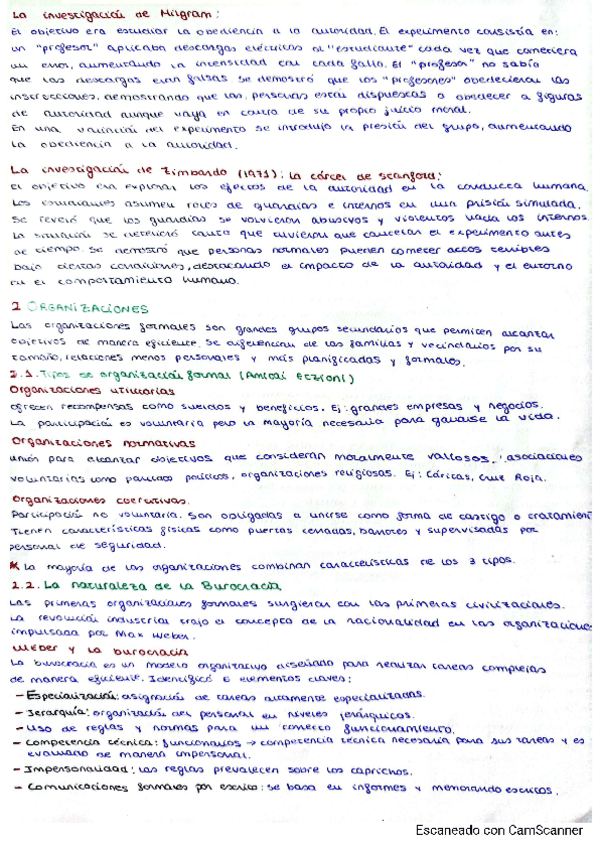 La investigación de Milgram:
El objetivo era estudiar la obediencia a la autoridad. El experimento consistía en:
un "profesor" aplicaba descargas eléctricas al "estudiante" cada vez que cometiera
un error, aumentando la intensidad con cada fallo. El "profesor" no sabía
que las descargas eran falsas se demostró que los "profesores" obedecieron las
instrucciones, demostrando que las personas están dispuestas a obedecer a figuras
de autoridad aunque vaya en contra de su propio juicio moral.
En una variación del experimento se introdujo la presión del grupo, aumentando
la obediencia a la autoridad.
La investigación de Zimbardo (1971): la cárcel de Stanford:
El objetivo era explorar los efectos de la autoridad en la conducta humana.
Los voluntarios asumen roles de guardias e internos en una prisión simulada.
Se reveló que los guardias se volvieron abusivos y violentos hacia los internos.
La situación se deterioró tanto que tuvieron que cancelar el experimento antes
de tiempo. Se demostró que personas normales pueden cometer actos terribles
bajo ciertas condiciones, destacando el impacto de la autoridad y el entorno
en el comportamiento humano.
2 ORGANIZACIONES
Las organizaciones formales son grandes grupos secundarios que permiten alcanzar
objetivos de manera eficiente. Se diferencian de las familias y vecindarios por su
tamaño, relaciones menos personales y más planificadas y formales.
2.1. Tipos de organización formal (Amitai Etzioni)
Organizaciones utilitarias
ofrecen recompensas como sueldos y beneficios. Ej: grandes empresas y negocios.
La participación es voluntaria pero la mayoría necesaria para ganarse la vida.
Organizaciones normativas
unión para alcanzar objetivos que consideran moralmente valiosos. asociaciones
voluntarias como partidos políticos, organizaciones religiosas. Ej: Cáritas, Cruz Roja.
Organizaciones coercitivas.
Participación no voluntaria. Son obligadas a unirse como forma de castigo o tratamient
Tienen características físicas como puertas cerradas, barrotes y supervisadas por
personal de seguridad.
* La mayoría de las organizaciones combinan características de los 3 tipos.
2.2. La naturaleza de la Burocracia
Las primeras organizaciones formales surgieron con las primeras civilizaciones.
La revolución industrial trajo el concepto de la racionalidad en las organizaciones
impulsada por Max Weber.
Weber y la burocracia
La burocracia es un modelo organizativo diseñado para realizar tareas complejas
de manera eficiente. Identificó 6 elementos claves:
- Especialización: asignación de tareas altamente especializadas.
- Jerarquía: organización del personal en niveles jerárquicos.
- Uso de reglas y normas para un correcto funcionamiento.
- Competencia técnica: funcionarios → competencia técnica necesaria para sus tareas y es
evaluado de manera impersonal.
- Impersonalidad: las reglas prevalecen sobre los caprichos.
- Comunicaciones formales por escrito: se basa en informes y memorando escritos.
Escaneado con CamScanner